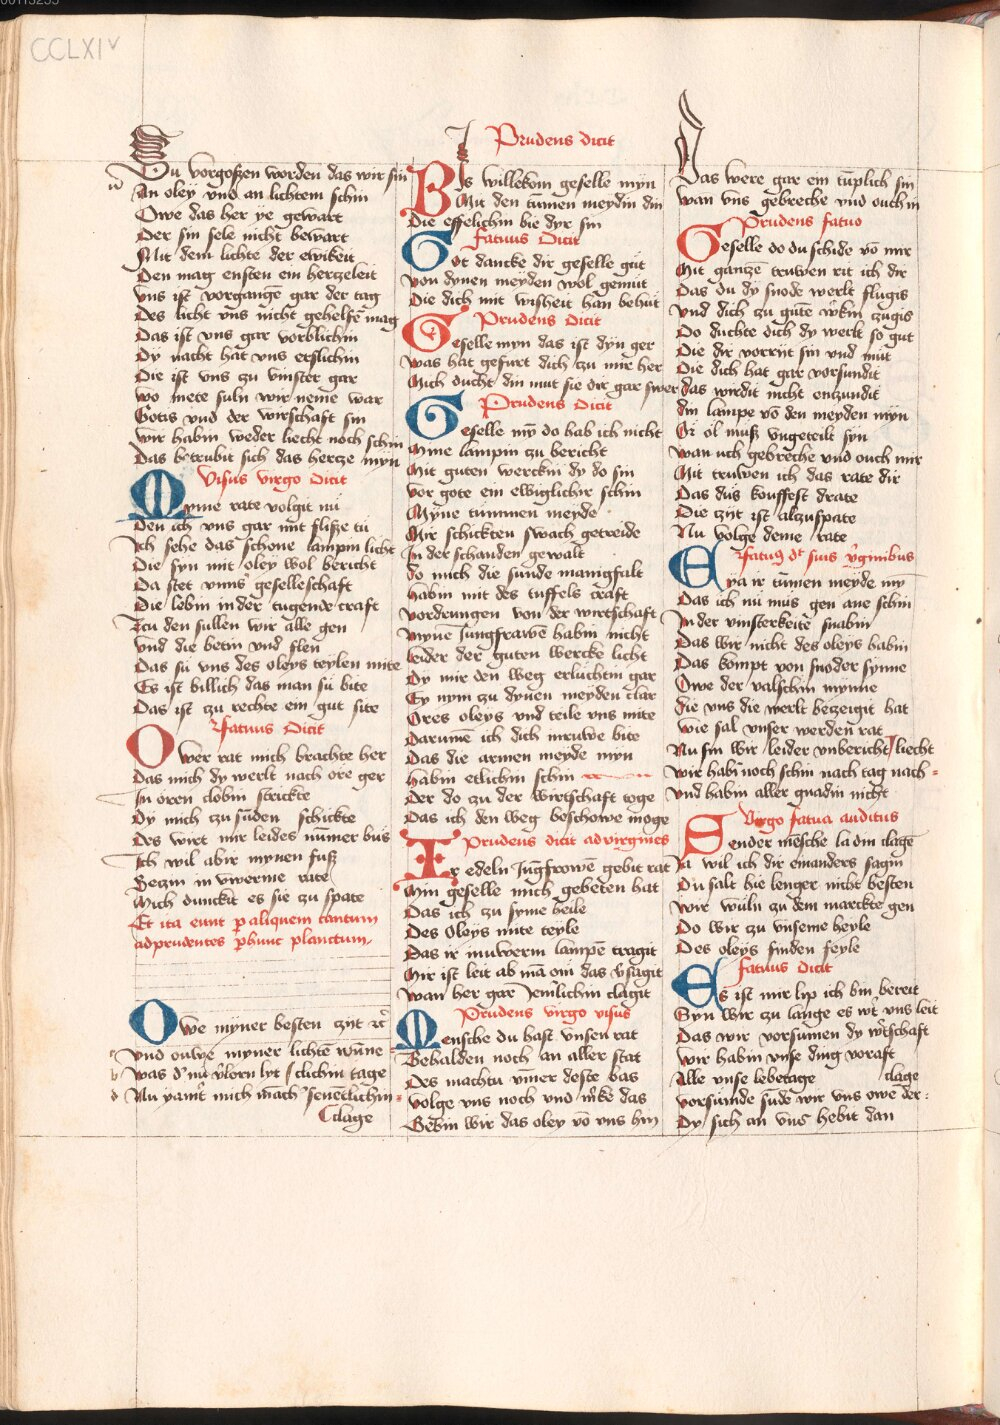 00113235
CCLXIv
Du vorgoszen worden das wir sin
An oley vnd an lichtem schin
Owe das her ye gewart
Der sin sele nicht bewart
Mit dem lichte der ewikeit
Den mag ensten ein herzeleit
vns ist vorgangē gar der tag
Des licht vns nicht gehelfē mag
Das ist vns gar vorblichin
Dy nacht hat vns erslichin
Die ist vns zu vinster gar
wo mete suln wir neme war
Gotis vnd der wirschaft sin
wir habin weder liecht noch schin
Das betrubit sich das hercze myn
Visus virgo Dicit
Myme rate volgit nu
Den ich vns gar mit flisze tu
Ich sehe das schone lampin licht
Die syn mit oley wol bericht
Da stet vnns geselleschaft
Die lebin in der tugende craft
Tzu den sullen wir alle gen
vnd die betin vnd flen
Das sü vns des oleys teylen mite
Es ist billich das man sü bite
Das ist zu rechte ein gut site
Fatuus Dicit
Ower rat mich brachte her
Das mich dy werlt nach ore ger
In oren clobin strickte
Dy mich czu süden schickte
Des wirt mir leides nūmer bus
Ich wil abir mynen fusz
Seczin in vwerme rate
Mich dunckit es sie zu spate
Et ita eunt p aliquem cantum
ad prudentes p hunc planctum.
Owe myner besten czyt ꝛc
vnd ouwe myner lichtē wūne
was d' mir v'lorn lyt clichin tage
Nu yam't mich māch senēclichin
Clage
Prudens dicit
Bis willekom geselle myn
Mit den tūmen meydin din
Die effelichin bie dyr sin
fatuus Dicit
Got dancke dir geselle güt
von dynen meyden wol gemüt
Die dich mit wisheit han behüt
Prudens Dicit
Geselle myn das ist dyn ger
was hat gefurt dich zu mir her
Mich ducht din mut sie dir gar swer
Prudens Dicit
Geselle mȳ do hab ich nicht
Mine lampin zu bericht
Mit guten werckin dy do sin
vor gote ein ewiglichir schin
Myne tummen meyde
Mir schickten swach getreide
In der schanden gewalt
do mich die sunde manigfalt
habin mit des tuffels craft
vordrungen von der wirtschaft
Myne Jungfrawē habin nicht
leider der guten wercke licht
Dy mir den weg erluchtin gar
Ey nym zu dynen meyden clar
Ores oleys vnd teile vns mite
Darumē ich dich mruwe bite
Das die armen meyde myn
habin etlichin schin
Der do zu der wirtschaft toge
Das ich den weg beschowe moge
Prudens dicit ad virgines
Ir edeln Jūgfrowē gebit rat
Min geselle mich gebeten hat
Das ich zu syme heile
Des Oleys mite teyle
Das ir inuwerm lampē tragit
Mir ist leit ab mā om das v'sagit
wan her gar Jemlichin clagit
Prudens virgo visus
Mensche du hast vnsen rat
Behalden noch an aller stat
Des machtu ymer deste bas
volge vns noch vnd m'ke das
Gebin wir das oley vō vns hin
Das were gar ein tūplich sin
wan vns gebreche vnd ouch in
Prudens fatuo
Geselle do du schide vō mir
Mit ganzē truwen rit ich dir
Das du dy snode werlt flugis
vnd dich zu gūtē w'kin zugis
Do duchte dich dy werlt so gut
Die dir vorryt sin vnd mut
Die dich hat gar vorsundit
das wirdit nicht enzundit
din lampe vō den meyden myn
Or öl musz vngeteilt syn
wan uch gebreche vnd ouch mir
Mit truwen ich das rate dir
Das dus kouffest drate
Die czyt ist alczuspate
Nu volge deme rate
Fatuꝰ dt suis v'ginibus
Eya ir tūmen meyde mȳ
Das ich nü müs gen ane schin
In der vinsterkeite snabin
Das wir nicht des oleys habin
Das kompt von snoder synne
Owe der valschin mynne
die vns die werlt bezeigit hat
wie sal vnser werden rat
Nu sin wir leider vnbericht liecht
wir habī noch schin nach tag nach
vnd habin aller gnadin nicht
Virgo fatua auditus
Sender mēsche la din clagē
Ja wil ich dir einanders sagin
Du salt hie lenger nicht besten
wir wūln zu dem marckte gen
Do wir zu vnseme heyle
Des oleys finden feyle
fatuus dicit
Es ist mir lyp ich bin bereit
Syn wir zu lange es w't vns leit
Das wir vorsumen dy w'tschaft
wir habin vnse ding voraft
Alle vnse lebetage clage
vorsumde sūde wir vns owe der
Dy sich an vns hebit dan